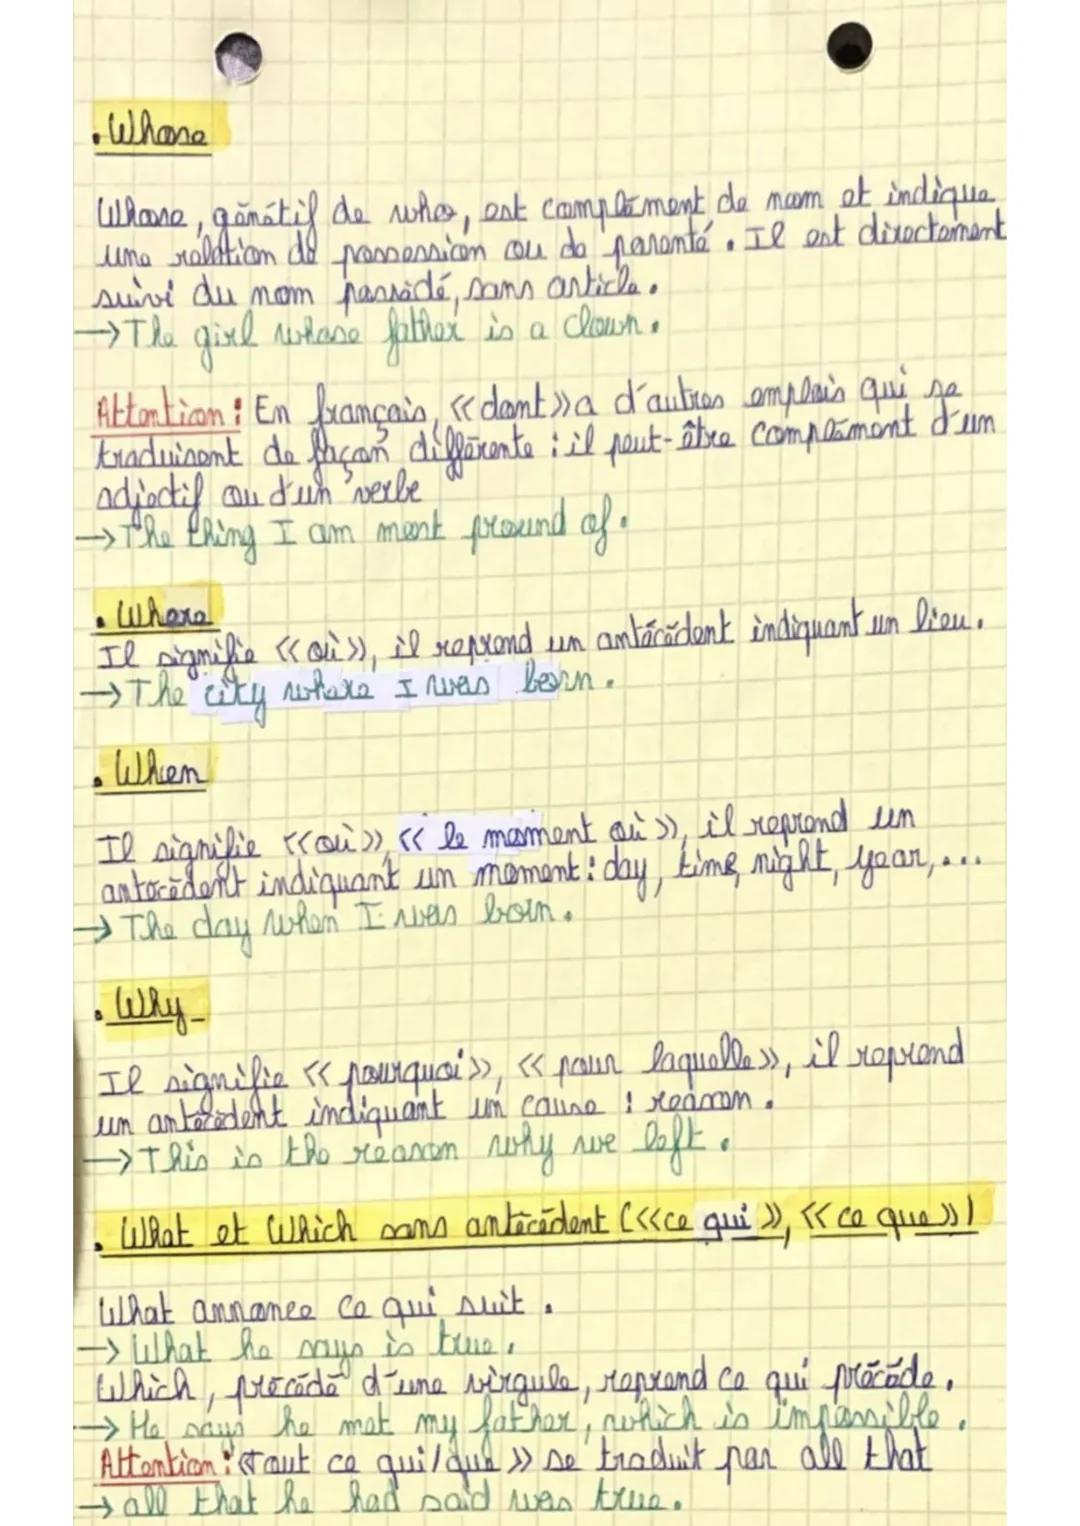 . Whose
Whose, génétif de who, est complément de nom et indique
une relation de possession ou de parenté. Il est directement
suivi du nom possédé, sans article.
→ The girl whose father is a clown.
Attention : En français, «dont» a d'autres emplois qui se
traduisent de façon différente : il peut-être complément d'un
adjectif ou d'un verbe
→ The thing I am most pround of.
. Where
Il signifie «où», il reprend un antécédent indiquant un lieu.
→ The city where I was born.
. When
Il signifie «où», « le moment où », il reprend un
antécédent indiquant un moment : day, time, night, year,...
→ The day when I was born.
. Why
Il signifie « pourquoi », « pour laquelle », il reprend
un antécédent indiquant un cause : reason.
→ This is the reason why we left.
. What et Which sans antécédent («ce qui », « ce que»)
What annonce ce qui suit.
→ What he says is true.
Which, précédé d'une virgule, reprend ce qui précède.
→ He says he met my father, which is impossible.
Attention : «Tout ce qui/que » se traduit par all that
→ all that he had said was true.